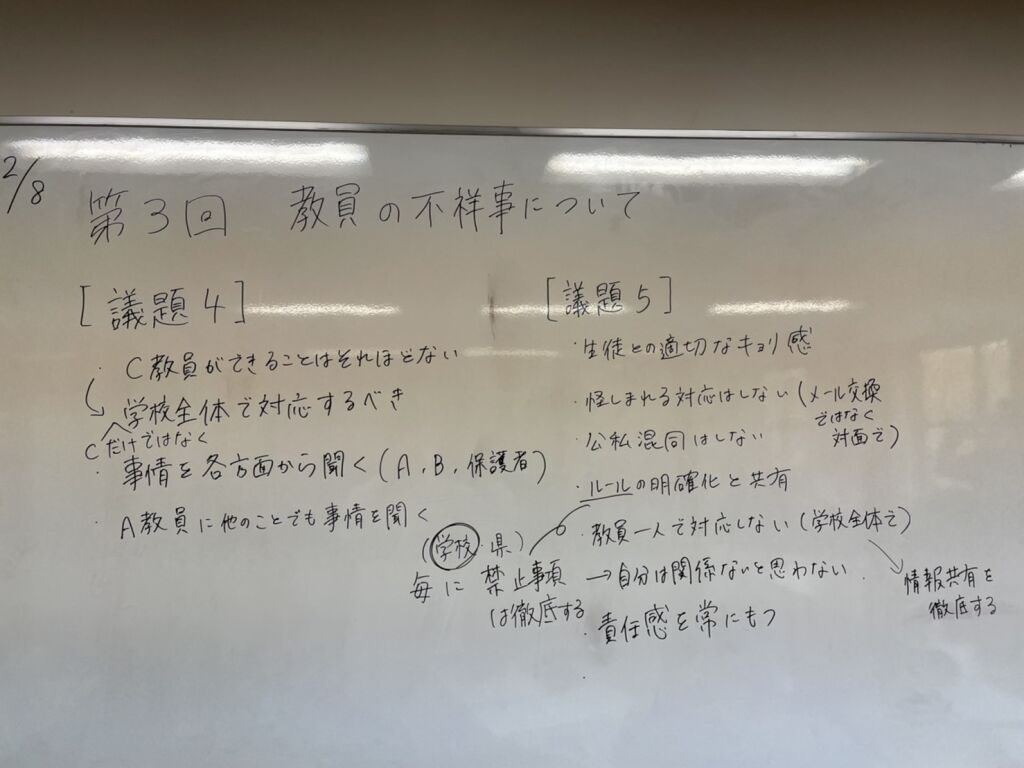 2/8
第3回 教員の不祥事について
[議題4]
・C教員ができることはそれほどない
学校全体で対応するべき
Cだけではなく
・事情を各方面から聞く(A、B、保護者)
・A教員に他のことでも事情を聞く
[議題5]
・生徒との適切なキョリ感
・怪しまれる対応はしない(メール交換
ではなく
対面で)
・公私混同はしない
・ルールの明確化と共有
(学校・県)
毎に 禁止事項
は徹底する
・教員一人で対応しない(学校全体で)
情報共有を
徹底する
→自分は関係ないと思わない
・責任感を常にもつ